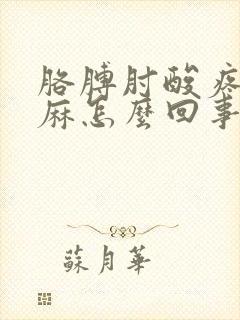 胳膊肘酸疼
麻怎麼回事
蘇月華